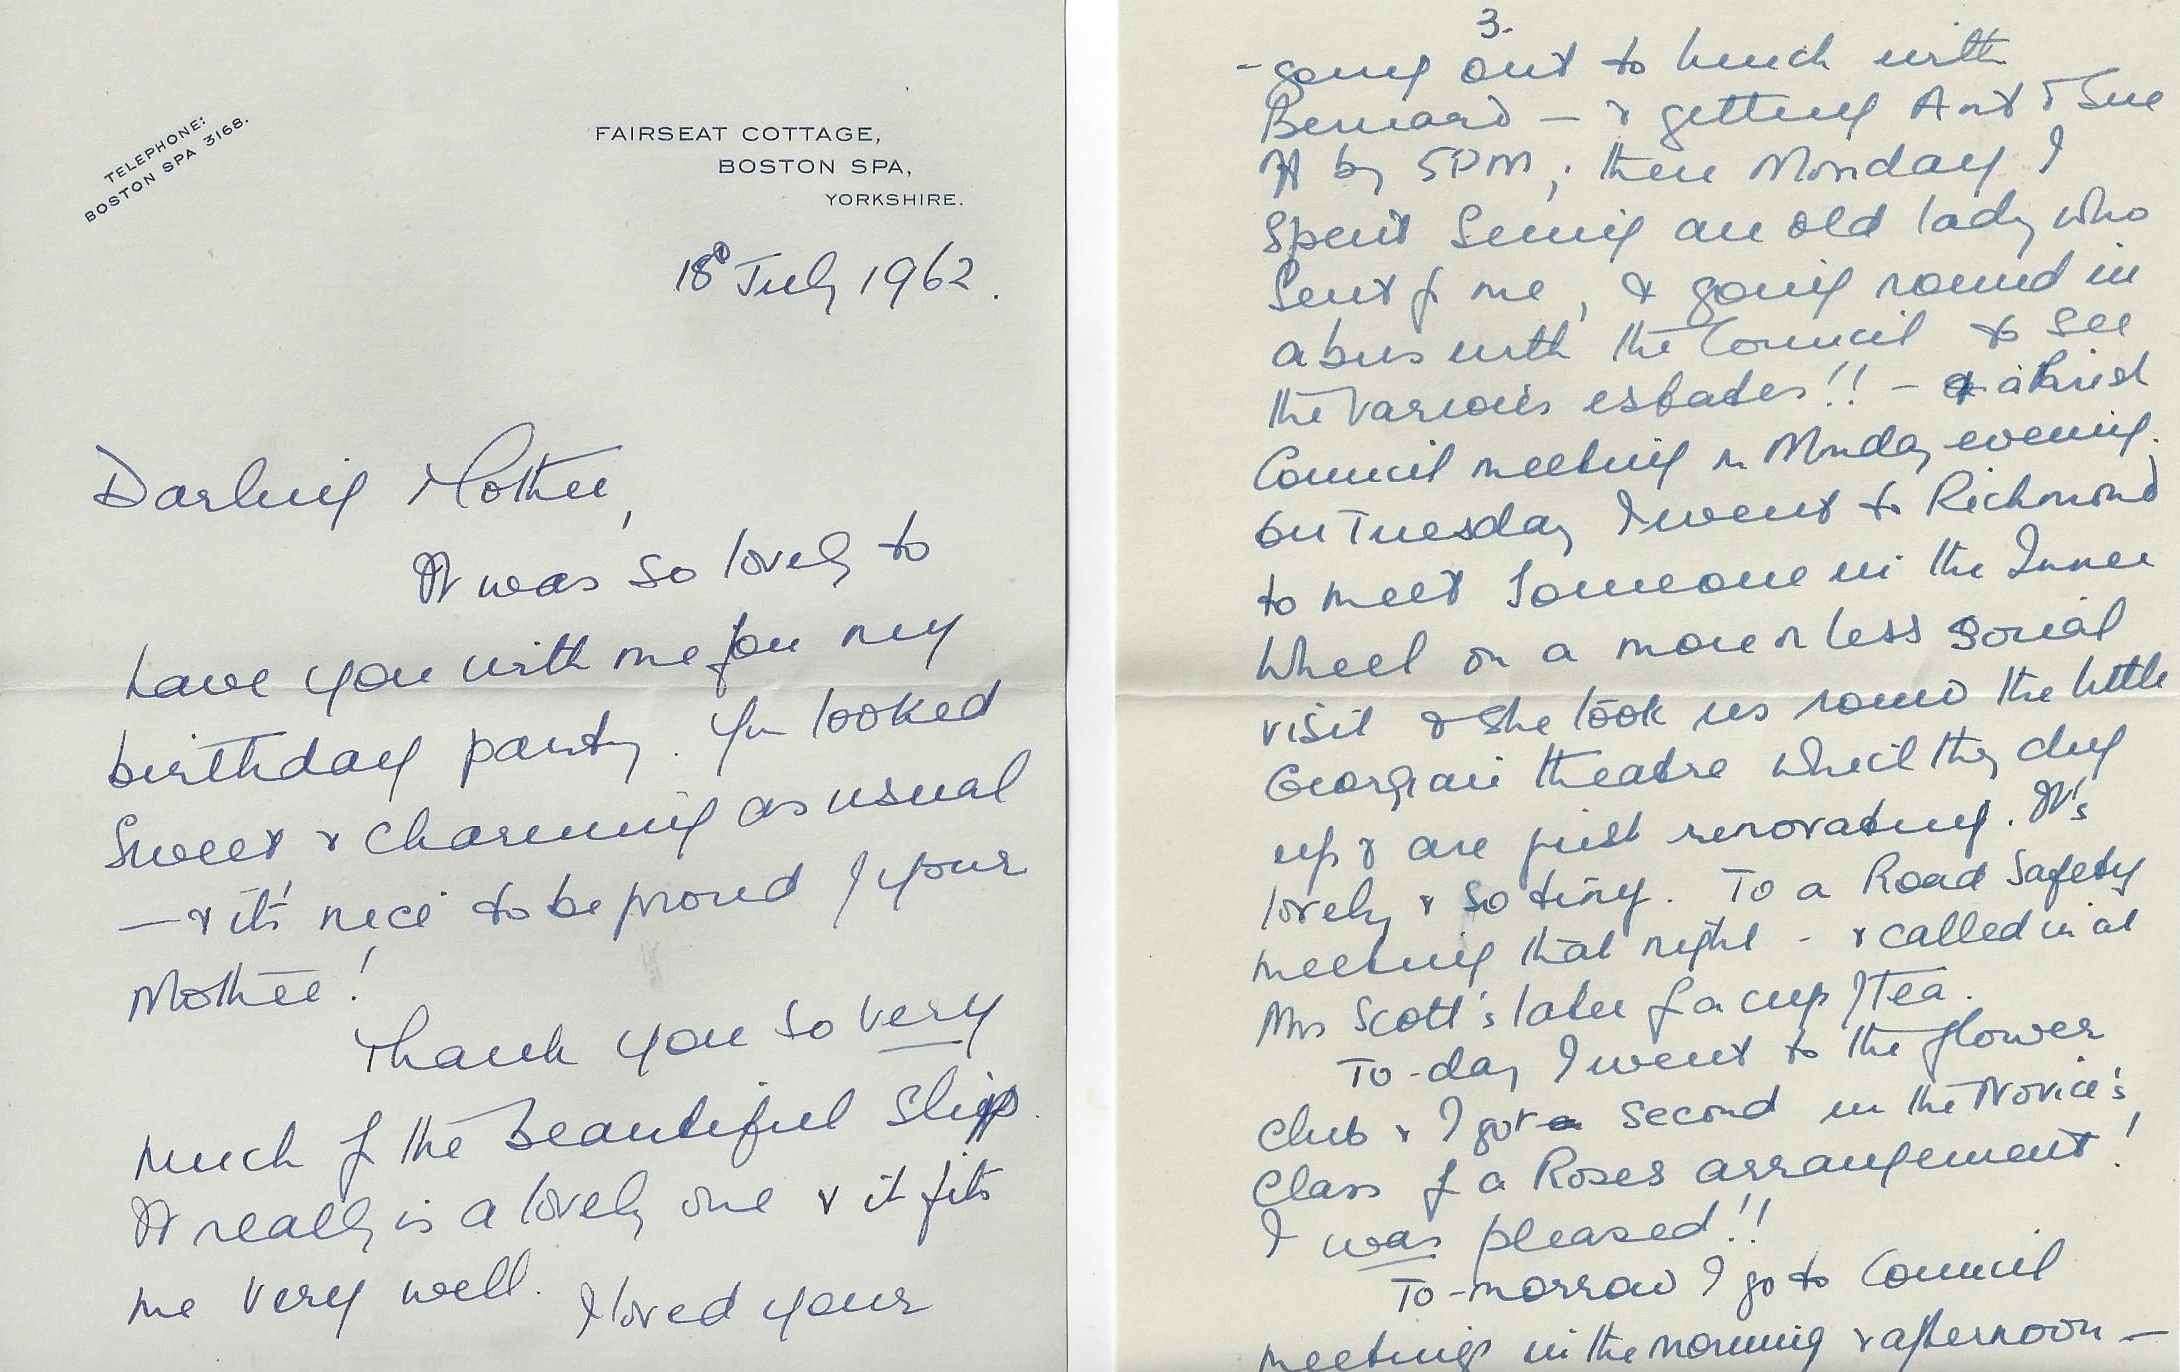 TELEPHONE:
BOSTON SPA 3168.
FAIRSEAT COTTAGE,
BOSTON SPA,
YORKSHIRE.
18 July 1962.
Darling Mother,
It was so lovely to
have you with me for my
birthday party. You looked
sweet & charming as usual
— & it's nice to be proud of your
Mother!
Thank you so very
much for the beautiful slip.
It really is a lovely one & it fits
me very well. I loved your
3.
- going out to lunch with
Bernard — & getting Ant & Sue
off by 5PM; then Monday I
spent seeing an old lady who
sent for me, & going round in
a bus with the Council to see
the various estates!! - & a Parish
Council meeting on Monday evening.
On Tuesday I went to Richmond
to meet someone in the Inner
Wheel on a more or less social
visit & she took us round the little
Georgian theatre which they dug
up & are just renovating. It's
lovely & so tiny. To a Road Safety
meeting that night - & called in at
Mrs Scott's later for a cup of tea.
To-day I went to the flower
club & I got second in the Novice's
Class for a Roses arrangement!
I was pleased!!
To-morrow I go to Council
meetings in the morning & afternoon —